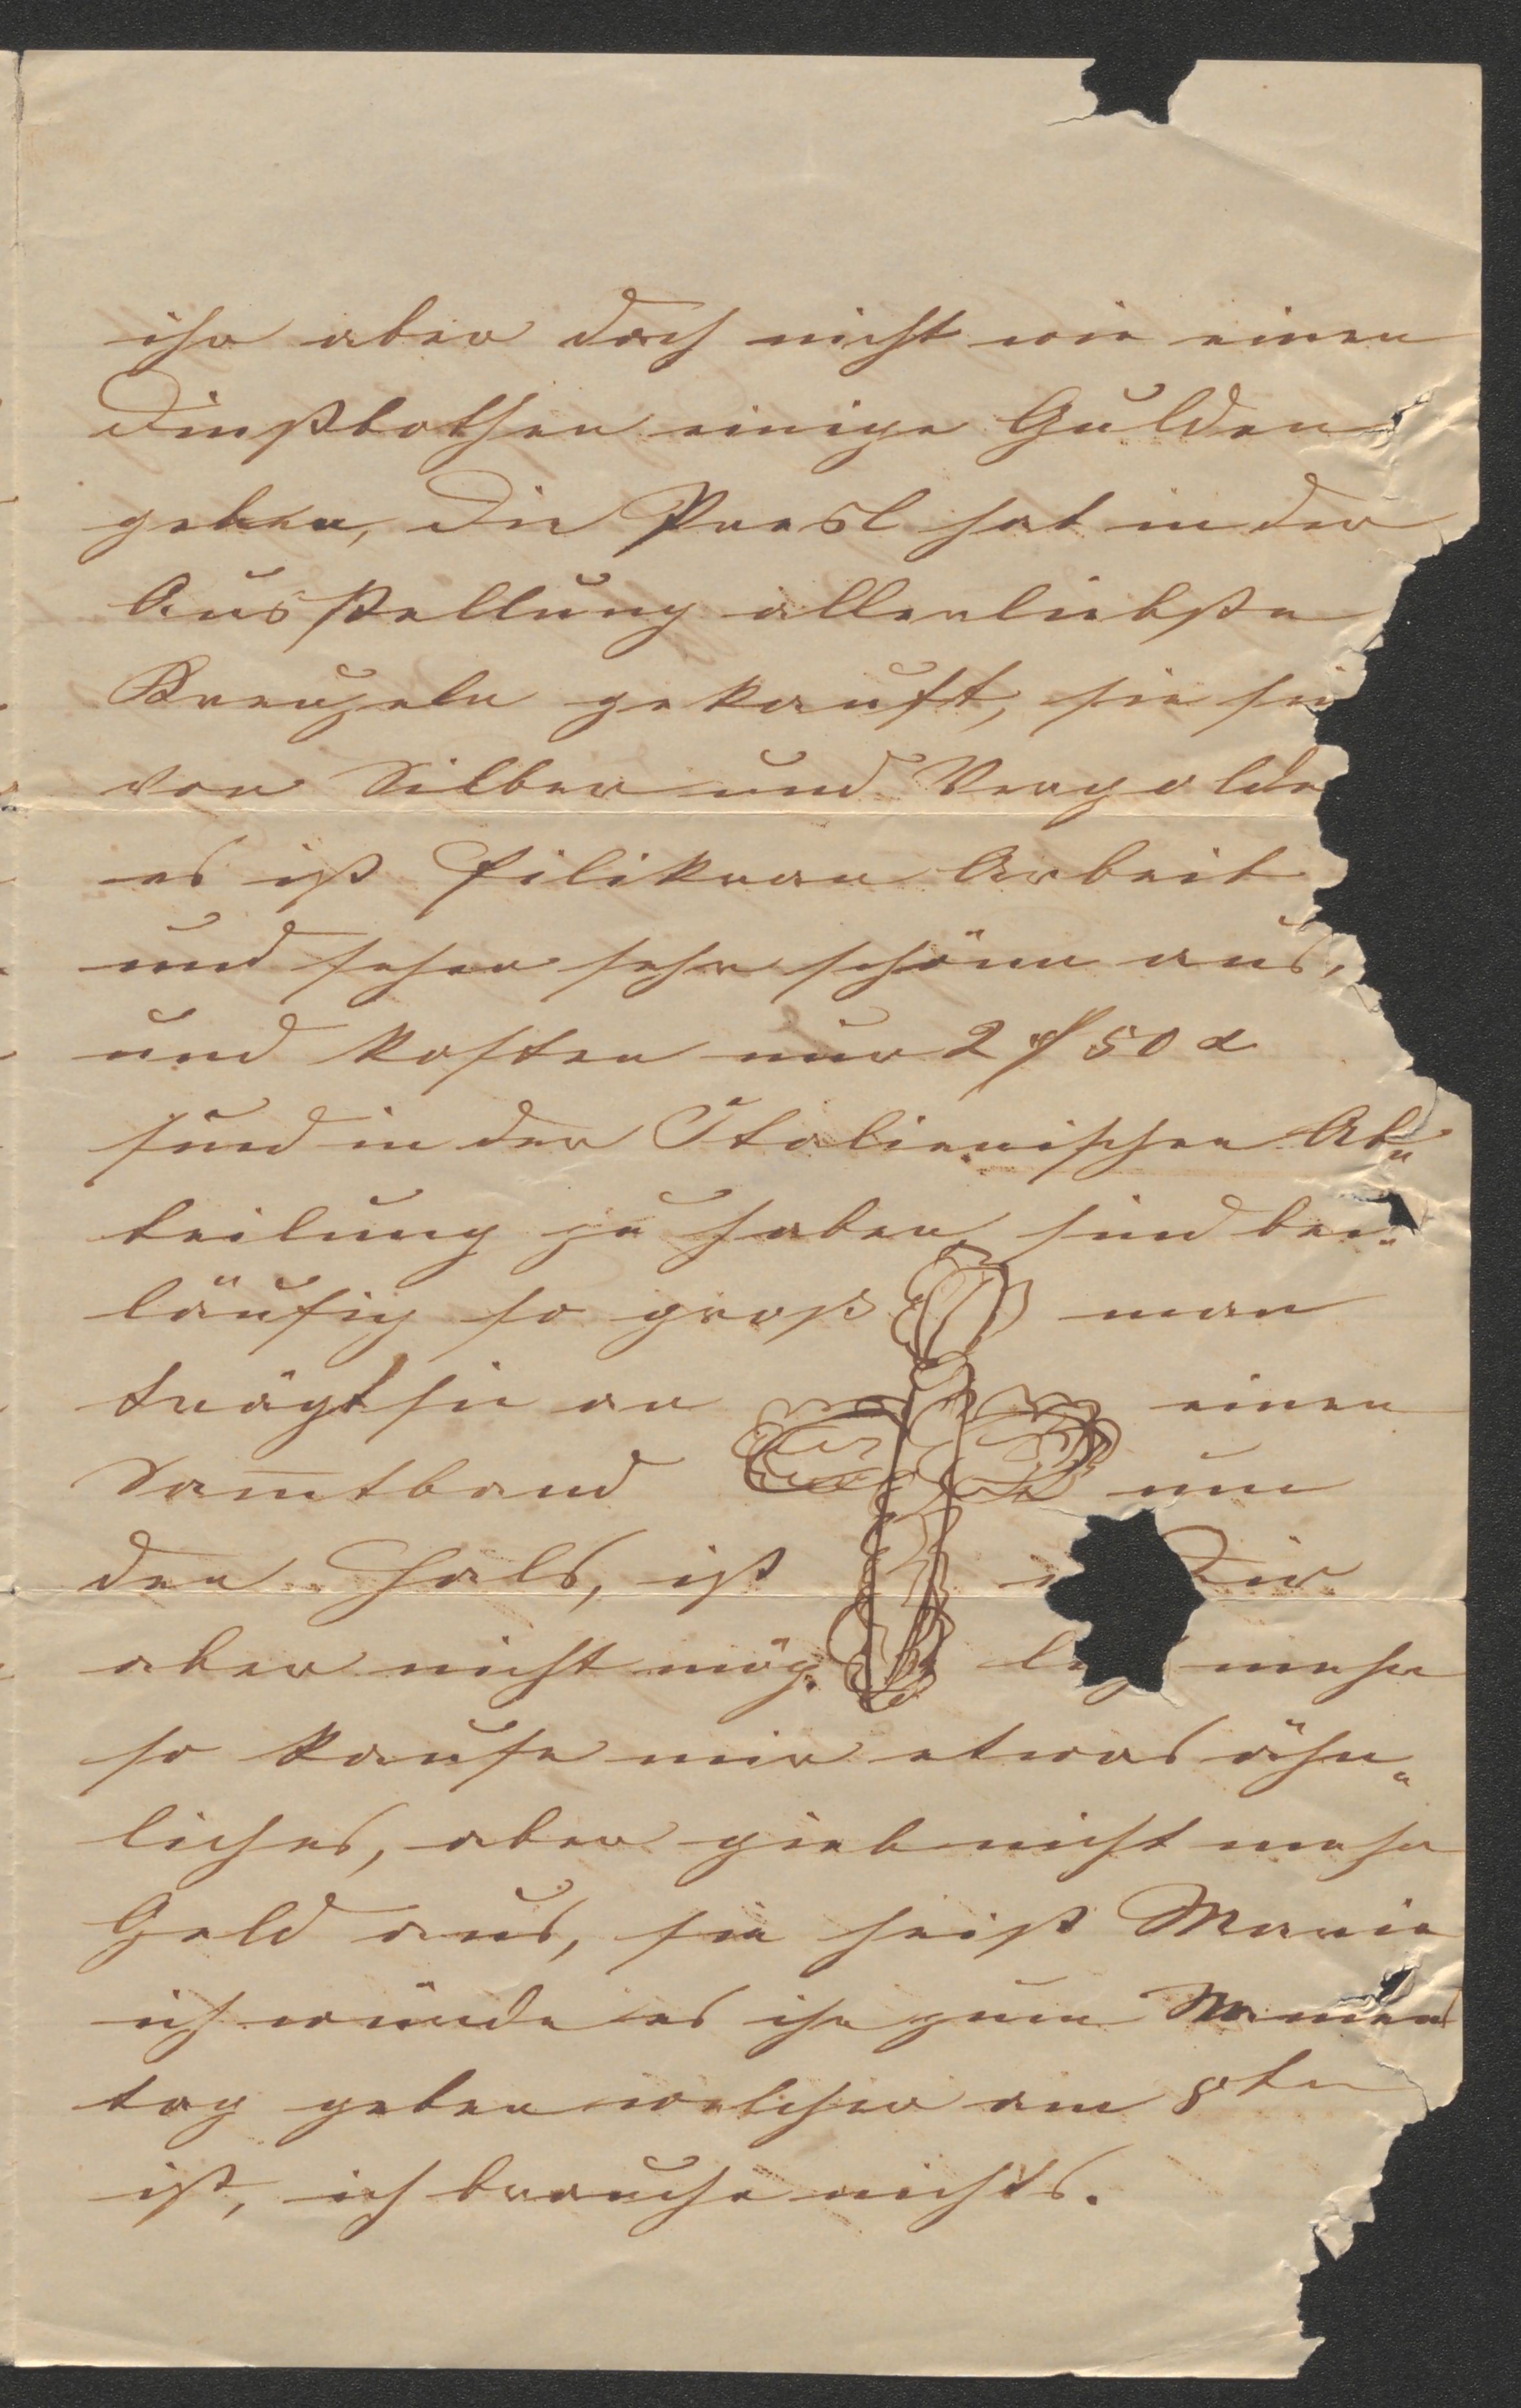 ihr aber doch nicht wie einen
Dinstbothen einige Gulden
geben, die Presl hat in der
Ausstellung allerliebste
Kreuzeln gekauft, sie si
von Silber und Vergolde
es ist Filikran Arbeit
und sehen sehr schönn aus,
und kosten nur 2 f 50 x
sind in der Italienischen Ab„
teilung zu haben, sind bei„
läufig so groß man
trägt sie an einen
Sam̅tband um
den Hals, ist Dir
aber nicht mög„ mehr
so kaufe mir etwas ähn„
liches, aber gieb nicht mehr
Geld aus, sie heißt Marie
ich würde es ihr zum Namens
tag geben welcher am 8ten
ist, ich brauche nichts.